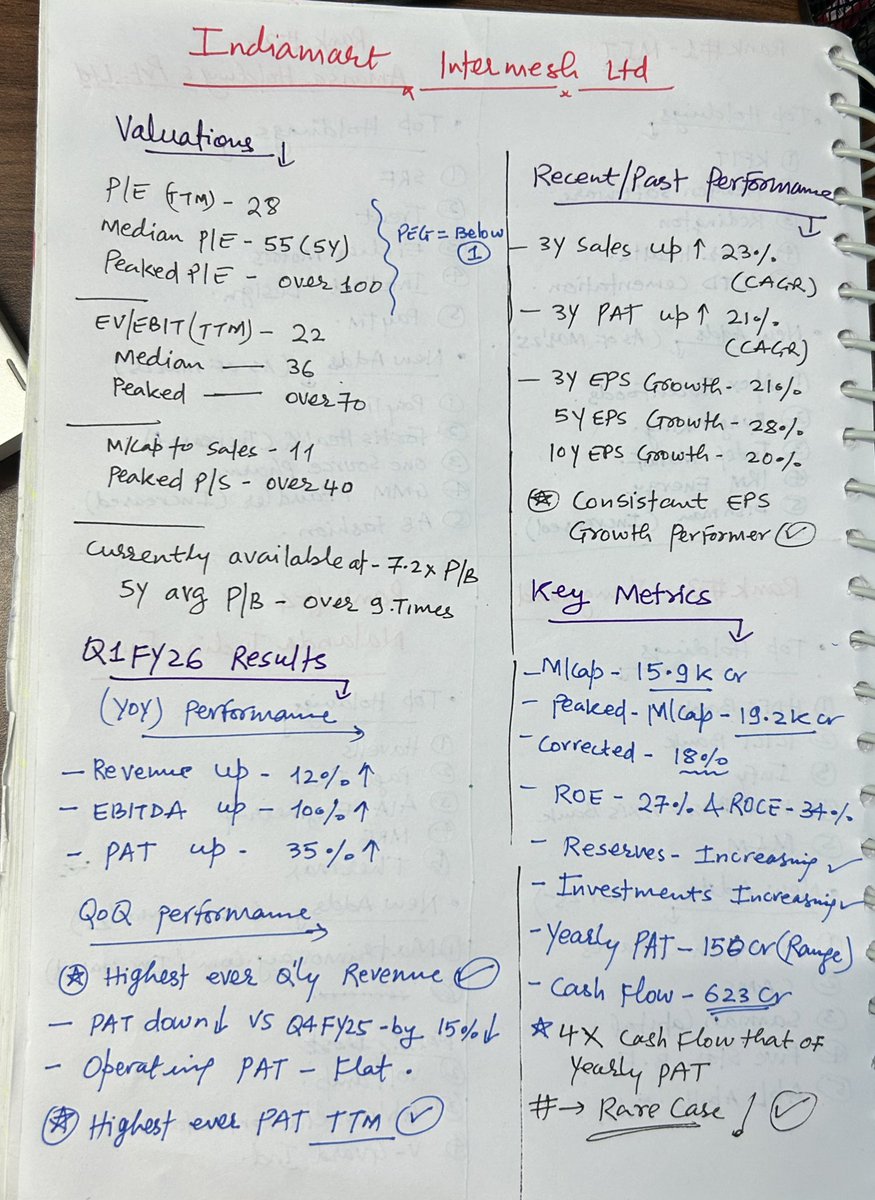 Indiamart Intermesh Ltd
Valuations ↓
P/E (TTM) - 28
Median P/E - 55 (5Y)
Peaked P/E - over 100
PEG = Below
①
EV/EBIT (TTM) - 22
Median — 36
Peaked — over 70
M/Cap to Sales - 11
Peaked P/S - over 40
Currently available at - 7.2x P/B
5Y avg P/B - over 9 Times
Q1FY26 Results
(YOY) Performance
- Revenue up - 12% ↑
- EBITDA up - 100% ↑
- PAT up - 35% ↑
QoQ performame
Highest ever Q'ly Revenue ✓
- PAT down ↓ VS Q4FY25 - by 15% ↓
- Operating PAT - Flat.
Highest ever PAT TTM ✓
Recent/Past Performance
- 3Y Sales up ↑ 23%
(CAGR)
- 3Y PAT up ↑ 21%
(CAGR)
- 3Y EPS Growth - 21%
5Y EPS Growth - 28%
10Y EPS Growth - 20%
Consistant EPS
Growth Performer ✓
Key Metrics
- M/Cap - 15.9K cr
- Peaked - M/Cap - 19.2K cr
- Corrected - 18%
- ROE - 27% & ROCE - 34%
- Reserves - Increasing ✓
- Investments Increasing ✓
- Yearly PAT - 150 cr (Range)
- Cash Flow - 623 Cr
★ 4X Cash Flow that of
Yearly PAT
# → Rare Case! ✓